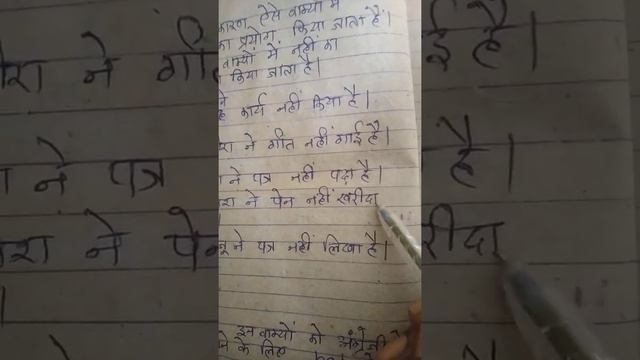 कारण ऐसे वाक्यों में
का प्रयोग किया जाता है।
वाक्यों में नहीं का
किया जाता है।
ने
कार्य नहीं किया है।
ने गीत नहीं गाई है।
ने पत्र नहीं पढ़ा है।
ने पेन नहीं खरीदा
ने पत्र नहीं लिखा है।
इन वाक्यों को अंग्रेजी
के लिए